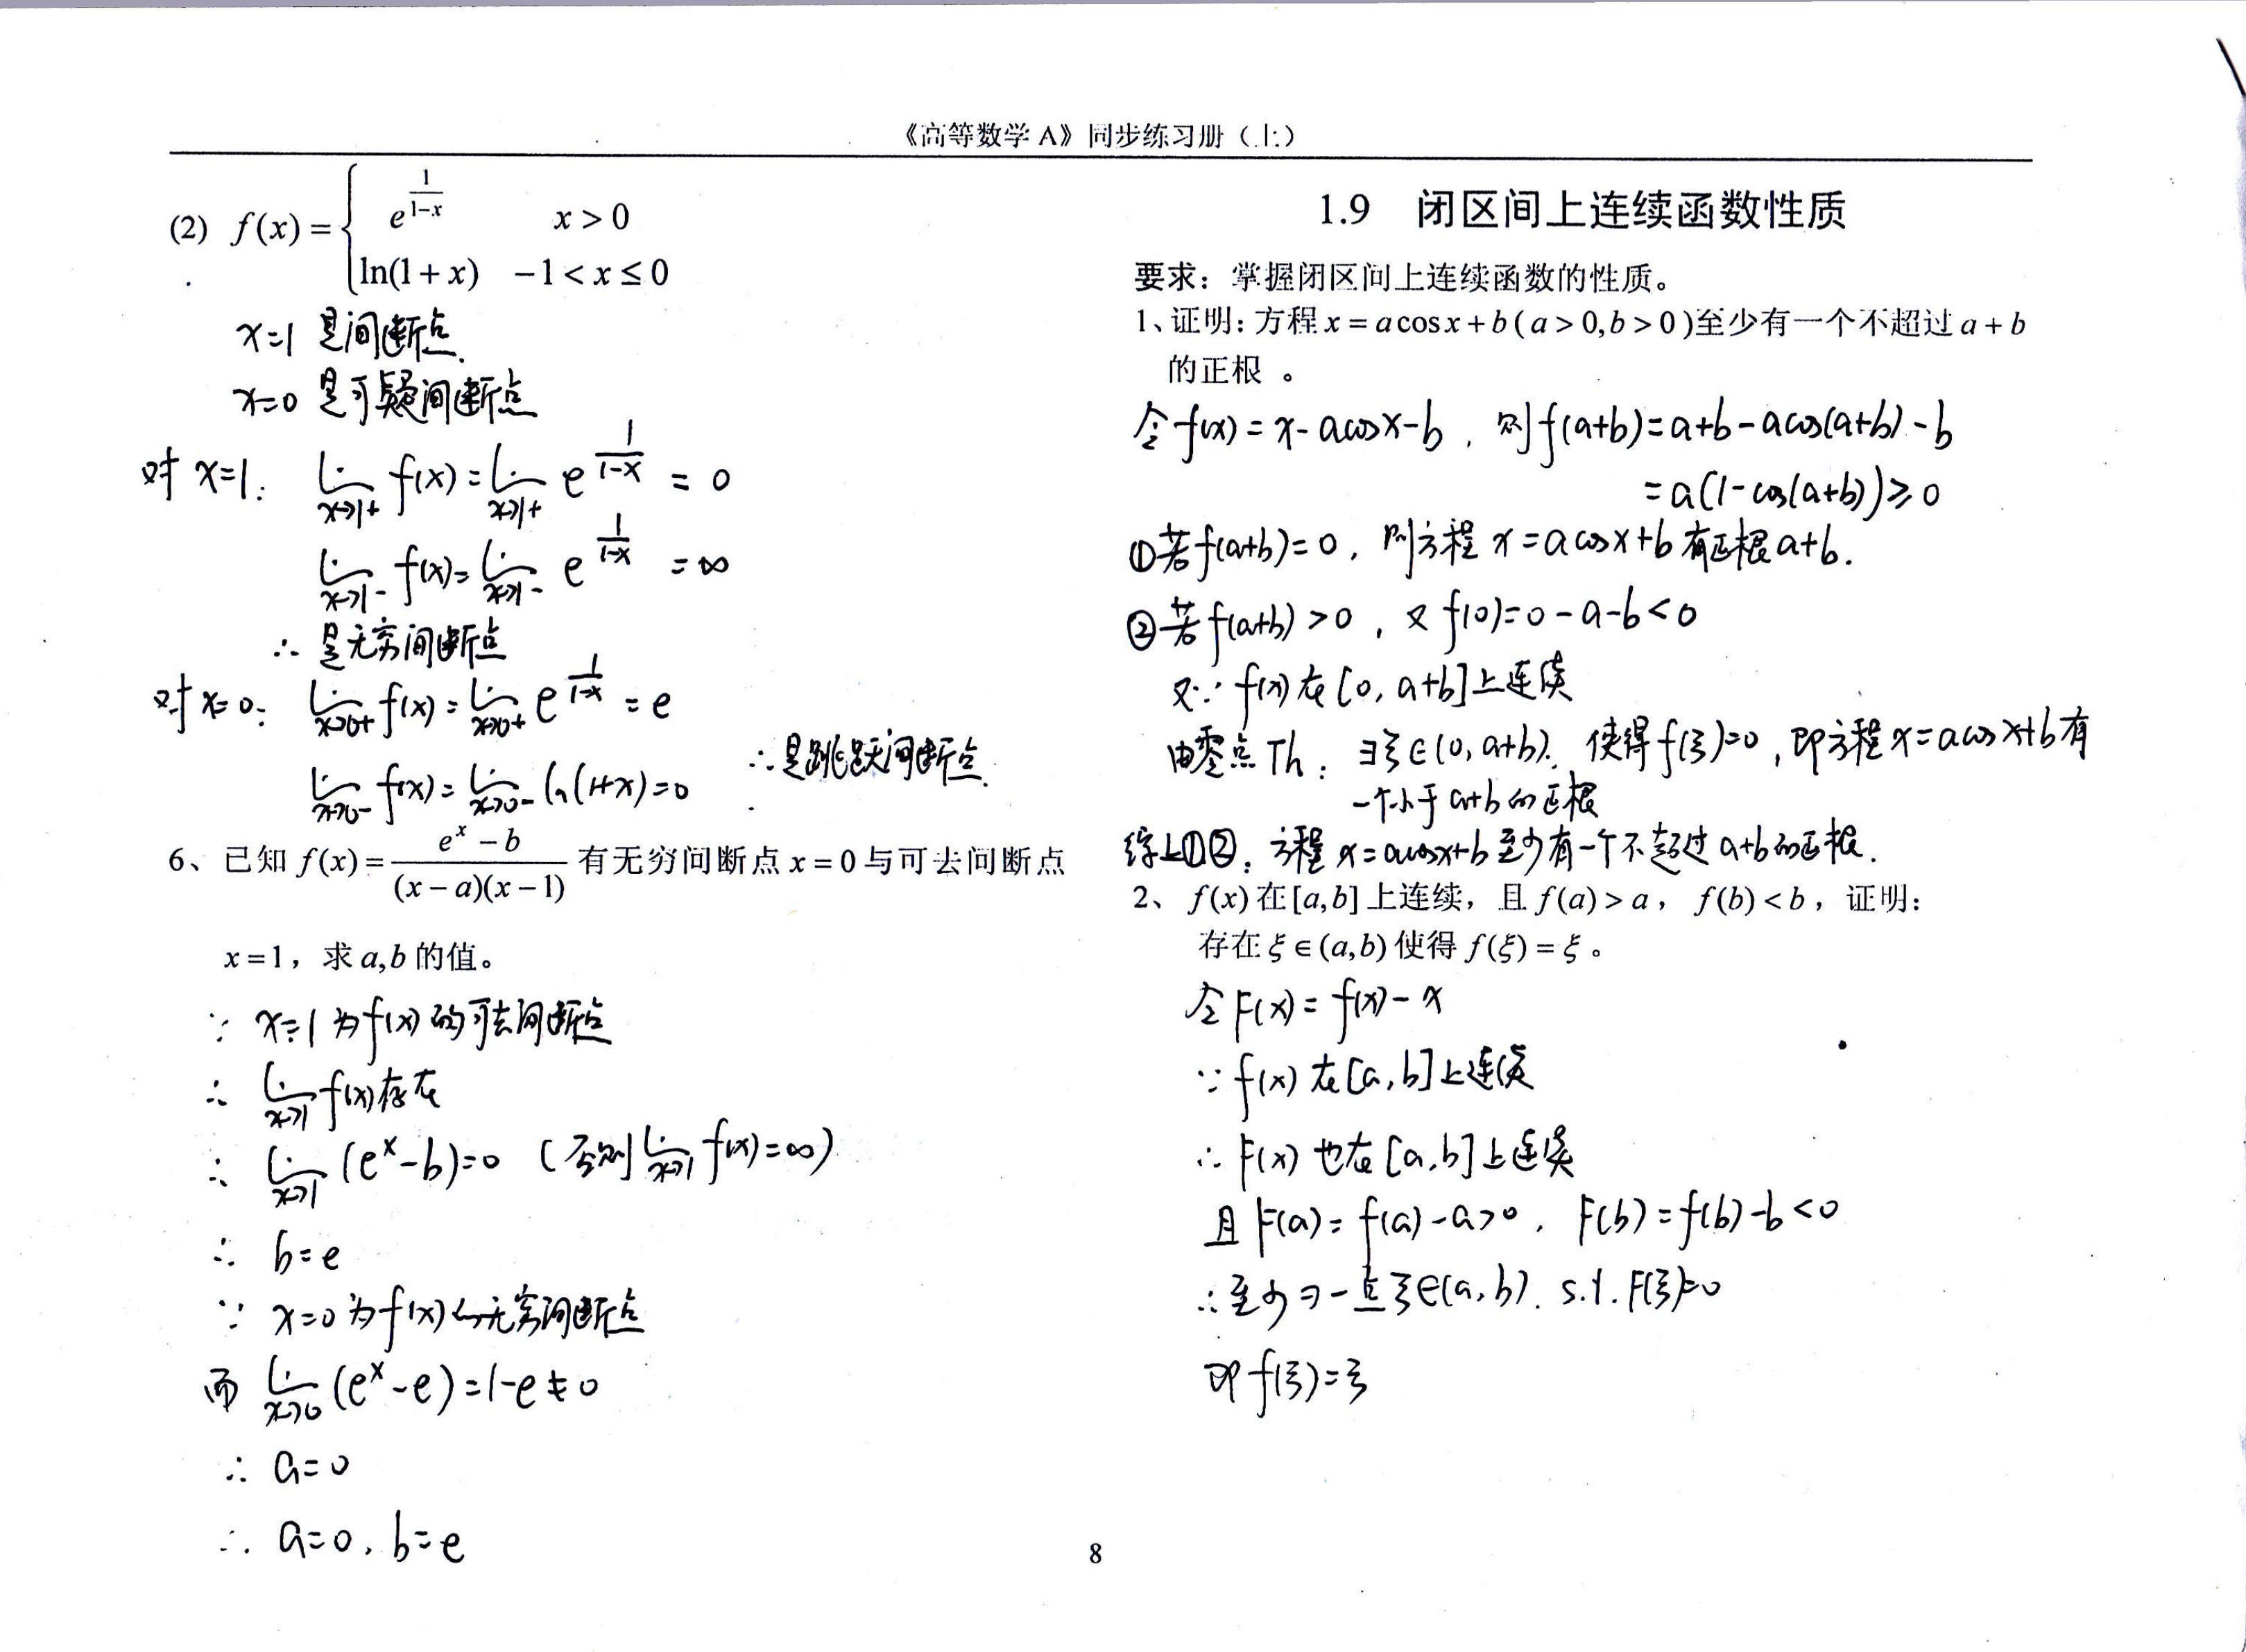 《高等数学 A》同步练习册（上）
(2) f(x) = { e^{1/(1-x)}  x > 0
ln(1 + x)  -1 < x ≤ 0
x=1 是间断点.
x=0 是可疑间断点
对 x=1: lim_{x→1+} f(x) = lim_{x→1+} e^{1/(1-x)} = 0
lim_{x→1-} f(x) = lim_{x→1-} e^{1/(1-x)} = ∞
∴ 是无穷间断点
对 x=0: lim_{x→0+} f(x) = lim_{x→0+} e^{1/(1-x)} = e
∴ 是跳跃间断点.
lim_{x→0-} f(x) = lim_{x→0-} ln(1+x) = 0
6、已知 f(x) = (e^x - b)/((x - a)(x - 1)) 有无穷间断点 x = 0 与可去间断点
x = 1，求 a,b 的值。
∵ x=1 为 f(x) 的可去间断点
∴ lim_{x→1} f(x) 存在
∴ lim_{x→1} (e^x - b) = 0 (否则 lim_{x→1} f(x) = ∞)
∴ b=e
∵ x=0 为 f(x) 的无穷间断点
而 lim_{x→0} (e^x - e) = 1-e ≠ 0
∴ a=0
∴ a=0, b=e
1.9 闭区间上连续函数性质
要求：掌握闭区间上连续函数的性质。
1、证明：方程 x = a cos x + b ( a > 0, b > 0 )至少有一个不超过 a + b
的正根 。
令 f(x) = x - a cos x - b, 则 f(a+b) = a+b - a cos(a+b) - b
= a(1 - cos(a+b)) ≥ 0
①若 f(a+b) = 0, 则方程 x = a cos x + b 有正根 a+b.
②若 f(a+b) > 0, 又 f(0) = 0 - a - b < 0
又∵ f(x) 在 [0, a+b] 上连续
由零点 Th: ∃ξ∈(0, a+b). 使得 f(ξ)=0, 即方程 x = a cos x + b 有
一个小于 a+b 的正根
综上①②: 方程 x = a cos x + b 至少有一个不超过 a+b 的正根.
2、 f(x) 在 [a,b] 上连续，且 f(a) > a， f(b) < b，证明：
存在 ξ ∈ (a,b) 使得 f(ξ) = ξ 。
令 F(x) = f(x) - x
∵ f(x) 在 [a, b] 上连续
∴ F(x) 也在 [a, b] 上连续
且 F(a) = f(a) - a > 0, F(b) = f(b) - b < 0
∴ 至少 ∃ 一点 ξ∈(a, b). s.t. F(ξ)=0
即 f(ξ) = ξ
8